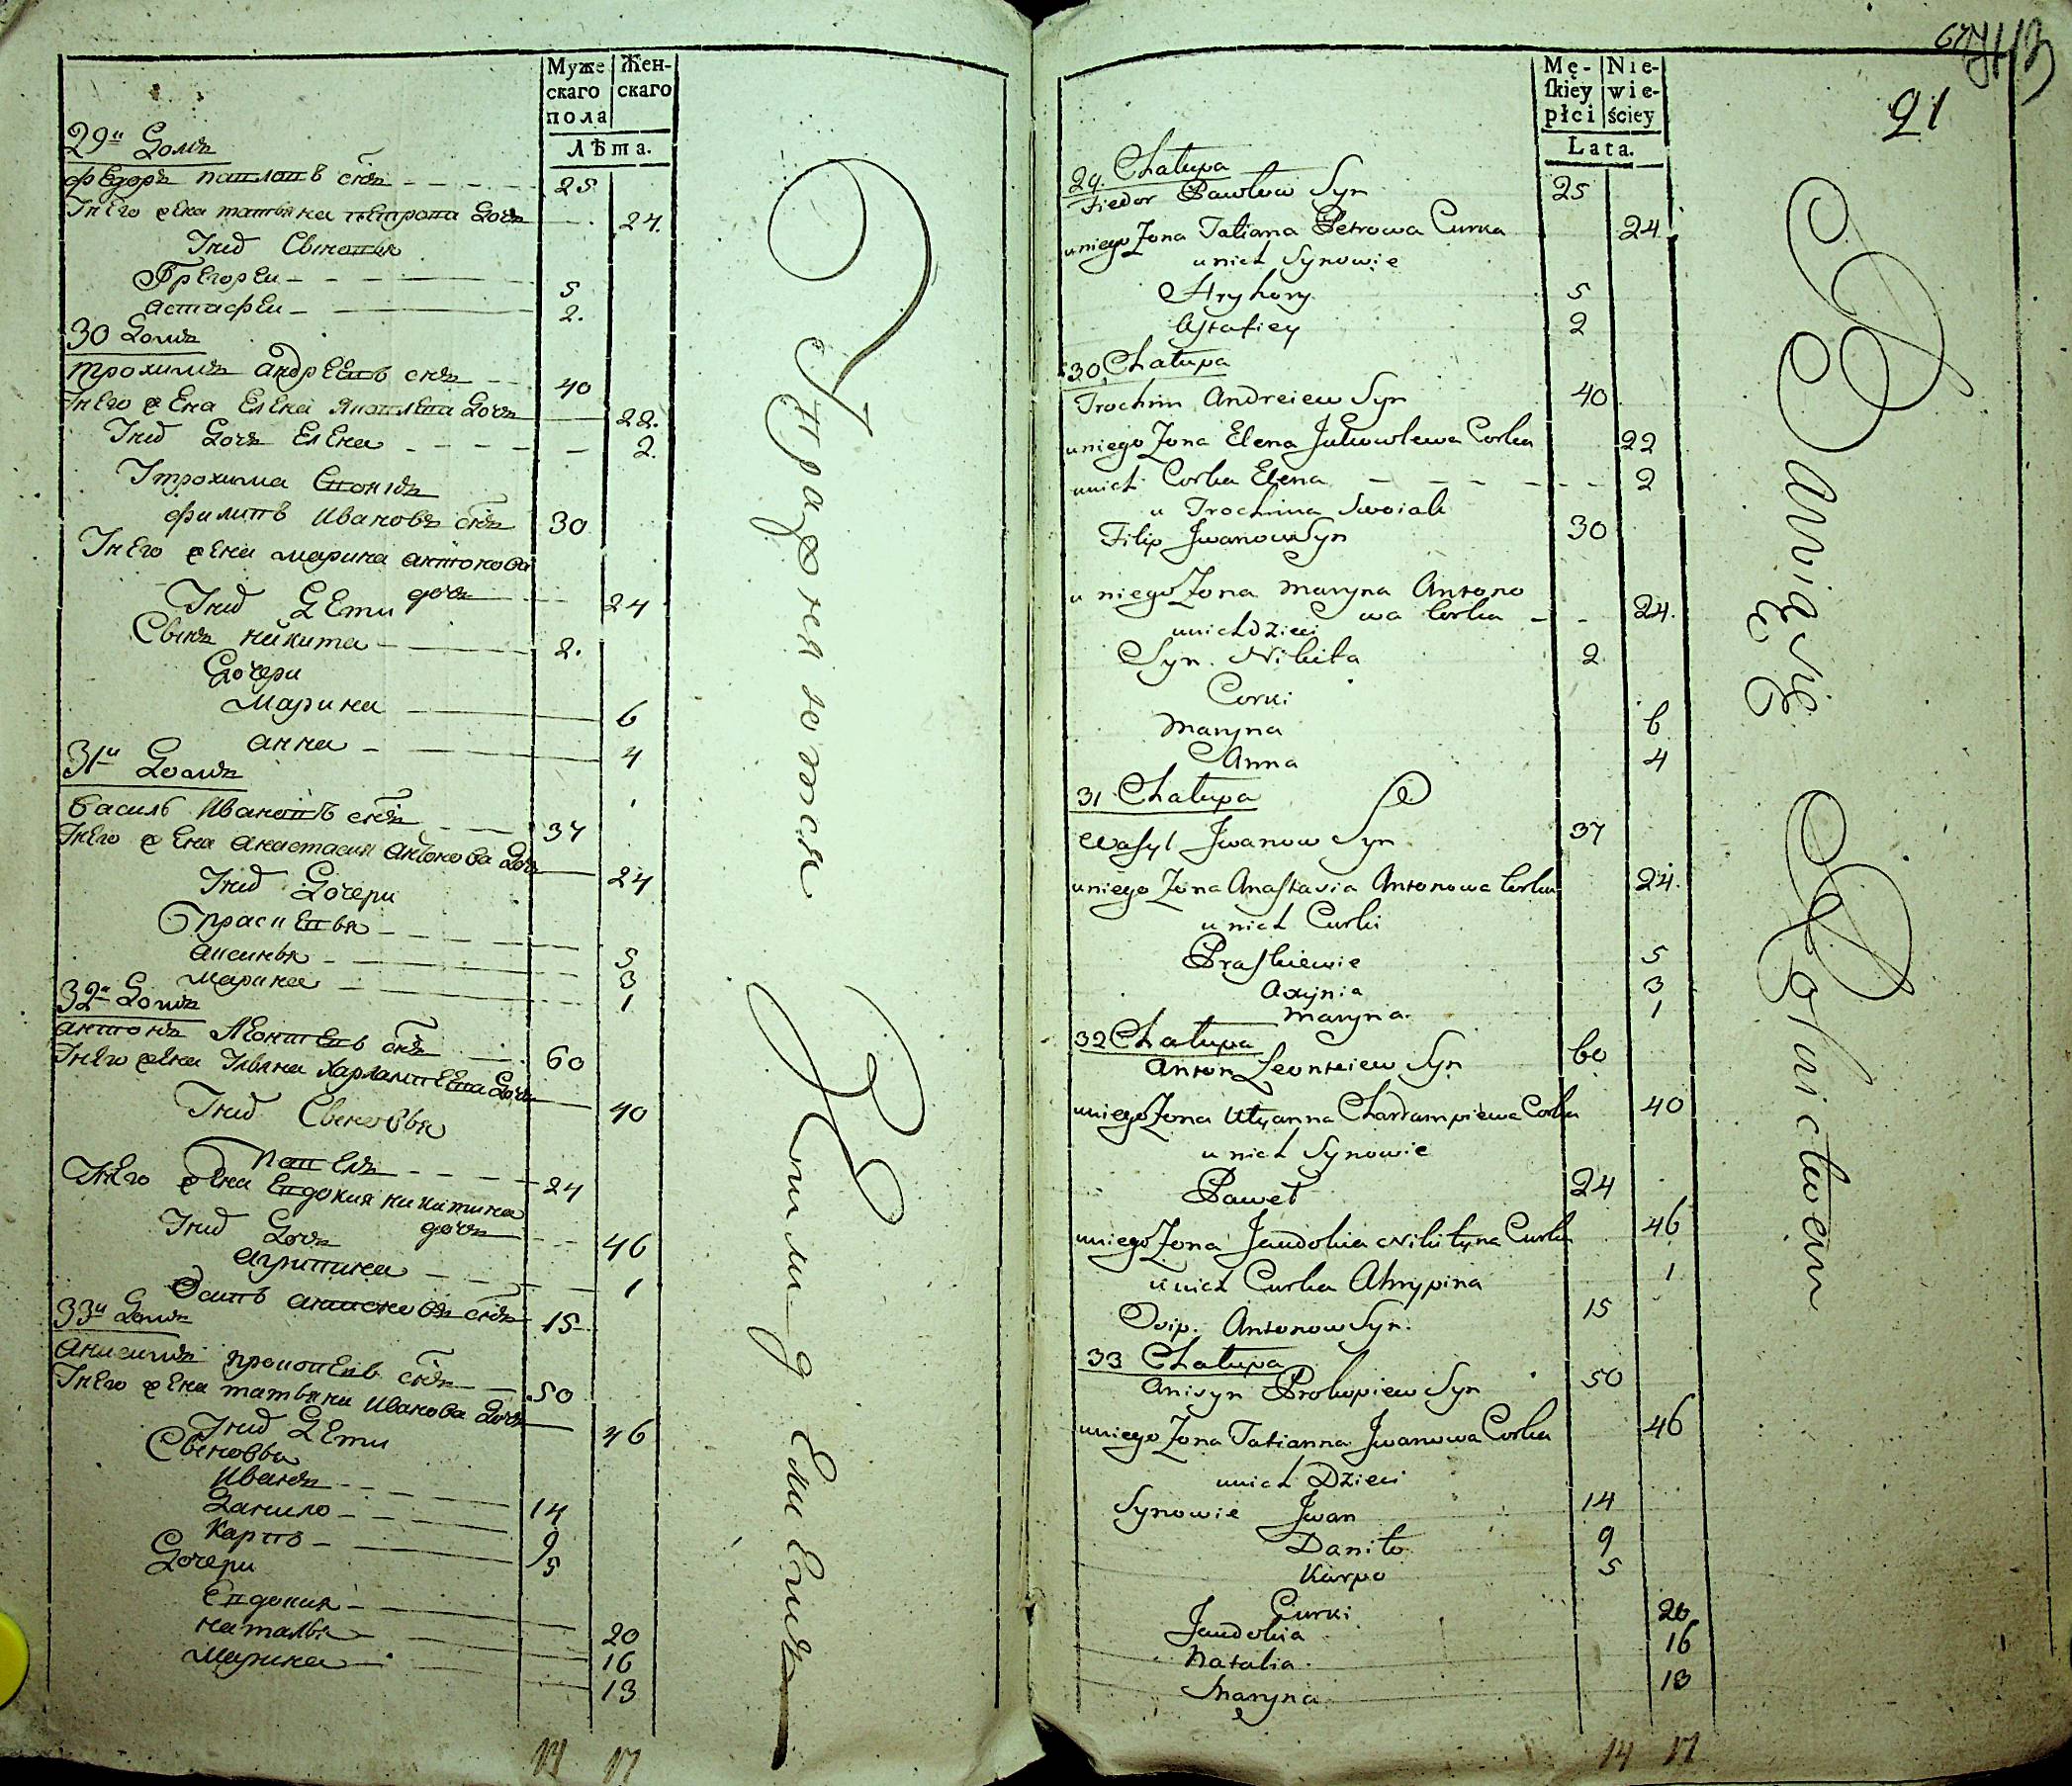 Муже
скаго
пола
Жен-
скаго
Лѣта.
29й Домъ
Федоръ павловъ снъ 25
У него жена татьяна петрова дочъ 24.
У нихъ Сыновья
Григореи 5
Астафеи 2.
30 Домъ
трохимъ андреевъ снъ 40
У него жена Елена яковлева дочъ 22.
У нихъ дочъ Елена 2.
У трохима своякъ
филипъ Ивановъ снъ 30
У него жена марина антонова
дочъ 24
У нихъ Дети
Сынъ никита 2.
Дочери
Марина 6
анна 4
31й Домъ
василь Ивановъ снъ 37
У него жена анастасия антонова дочъ 24
У нихъ Дочери
Прасковья 5
аксинья 3
марина 1
32й Домъ
антонъ Леонтьевъ снъ 60
У него жена Ульяна Харлампеева дочъ 40
У нихъ Сыновья
Павелъ 24
У него жена Евдокия никитина
дочъ 46
У нихъ Дочъ
агрипина 1
Осипъ антоновъ снъ 15
33й Домъ
анисимъ прокопевъ снъ 50
У него жена татьяна Иванова дочъ 46
У нихъ Дети
Сыновья
Иванъ 14
Данило 9
Карпъ 5
Дочери
Евдокия 20
наталья 16
марина 13
17
Упражняются
Хлѣ
Mę-
ſkiey
płci
Nie-
wie-
ściey
Lata.
91
29. Chałupa
Fiedor Pawłow Syn 25
u niego Zona Tatiana Petrowa Curka 24
u nich Synowie
Hryhory 5
Astafiey 2
30 Chałupa
Trochim Andreiew Syn 40
u niego Zona Elena Jakowlewa Corka 22
u nich Corka Elena 2
u Trochima Swoiak
Filip Jwanow Syn 30
u niego Zona Maryna Antono
wa Corka 24.
u nich dzieci
Syn. Nikita 2
Corki
Maryna 6
Anna 4
31 Chałupa
Wasyl Jwanow Syn 37
u niego Zona Anastasia Antonowa Corka 24.
u nich Curki
Praskiewie 5
Axynia 3
Maryna. 1
32 Chałupa
Anton Leontiew Syn 60
u niego Zona Ulyanna Charłampiewa Corka 40
u nich Synowie
Paweł 24
u niego Zona Jewdokia Nikityna Curka 46
u nich Curka Ahrypina 1
Osip. Antonow Syn. 15
33 Chałupa
Anisym Prokopiew Syn 50
u niego Zona Tatianna Jwanowa Corka 46
u nich Dzieci
Synowie Jwan 14
Daniło 9
Karpo 5
Curki
Jewdokia 20
Natalia. 16
Maryna 13
14 17
Bawią się Rolnictwem